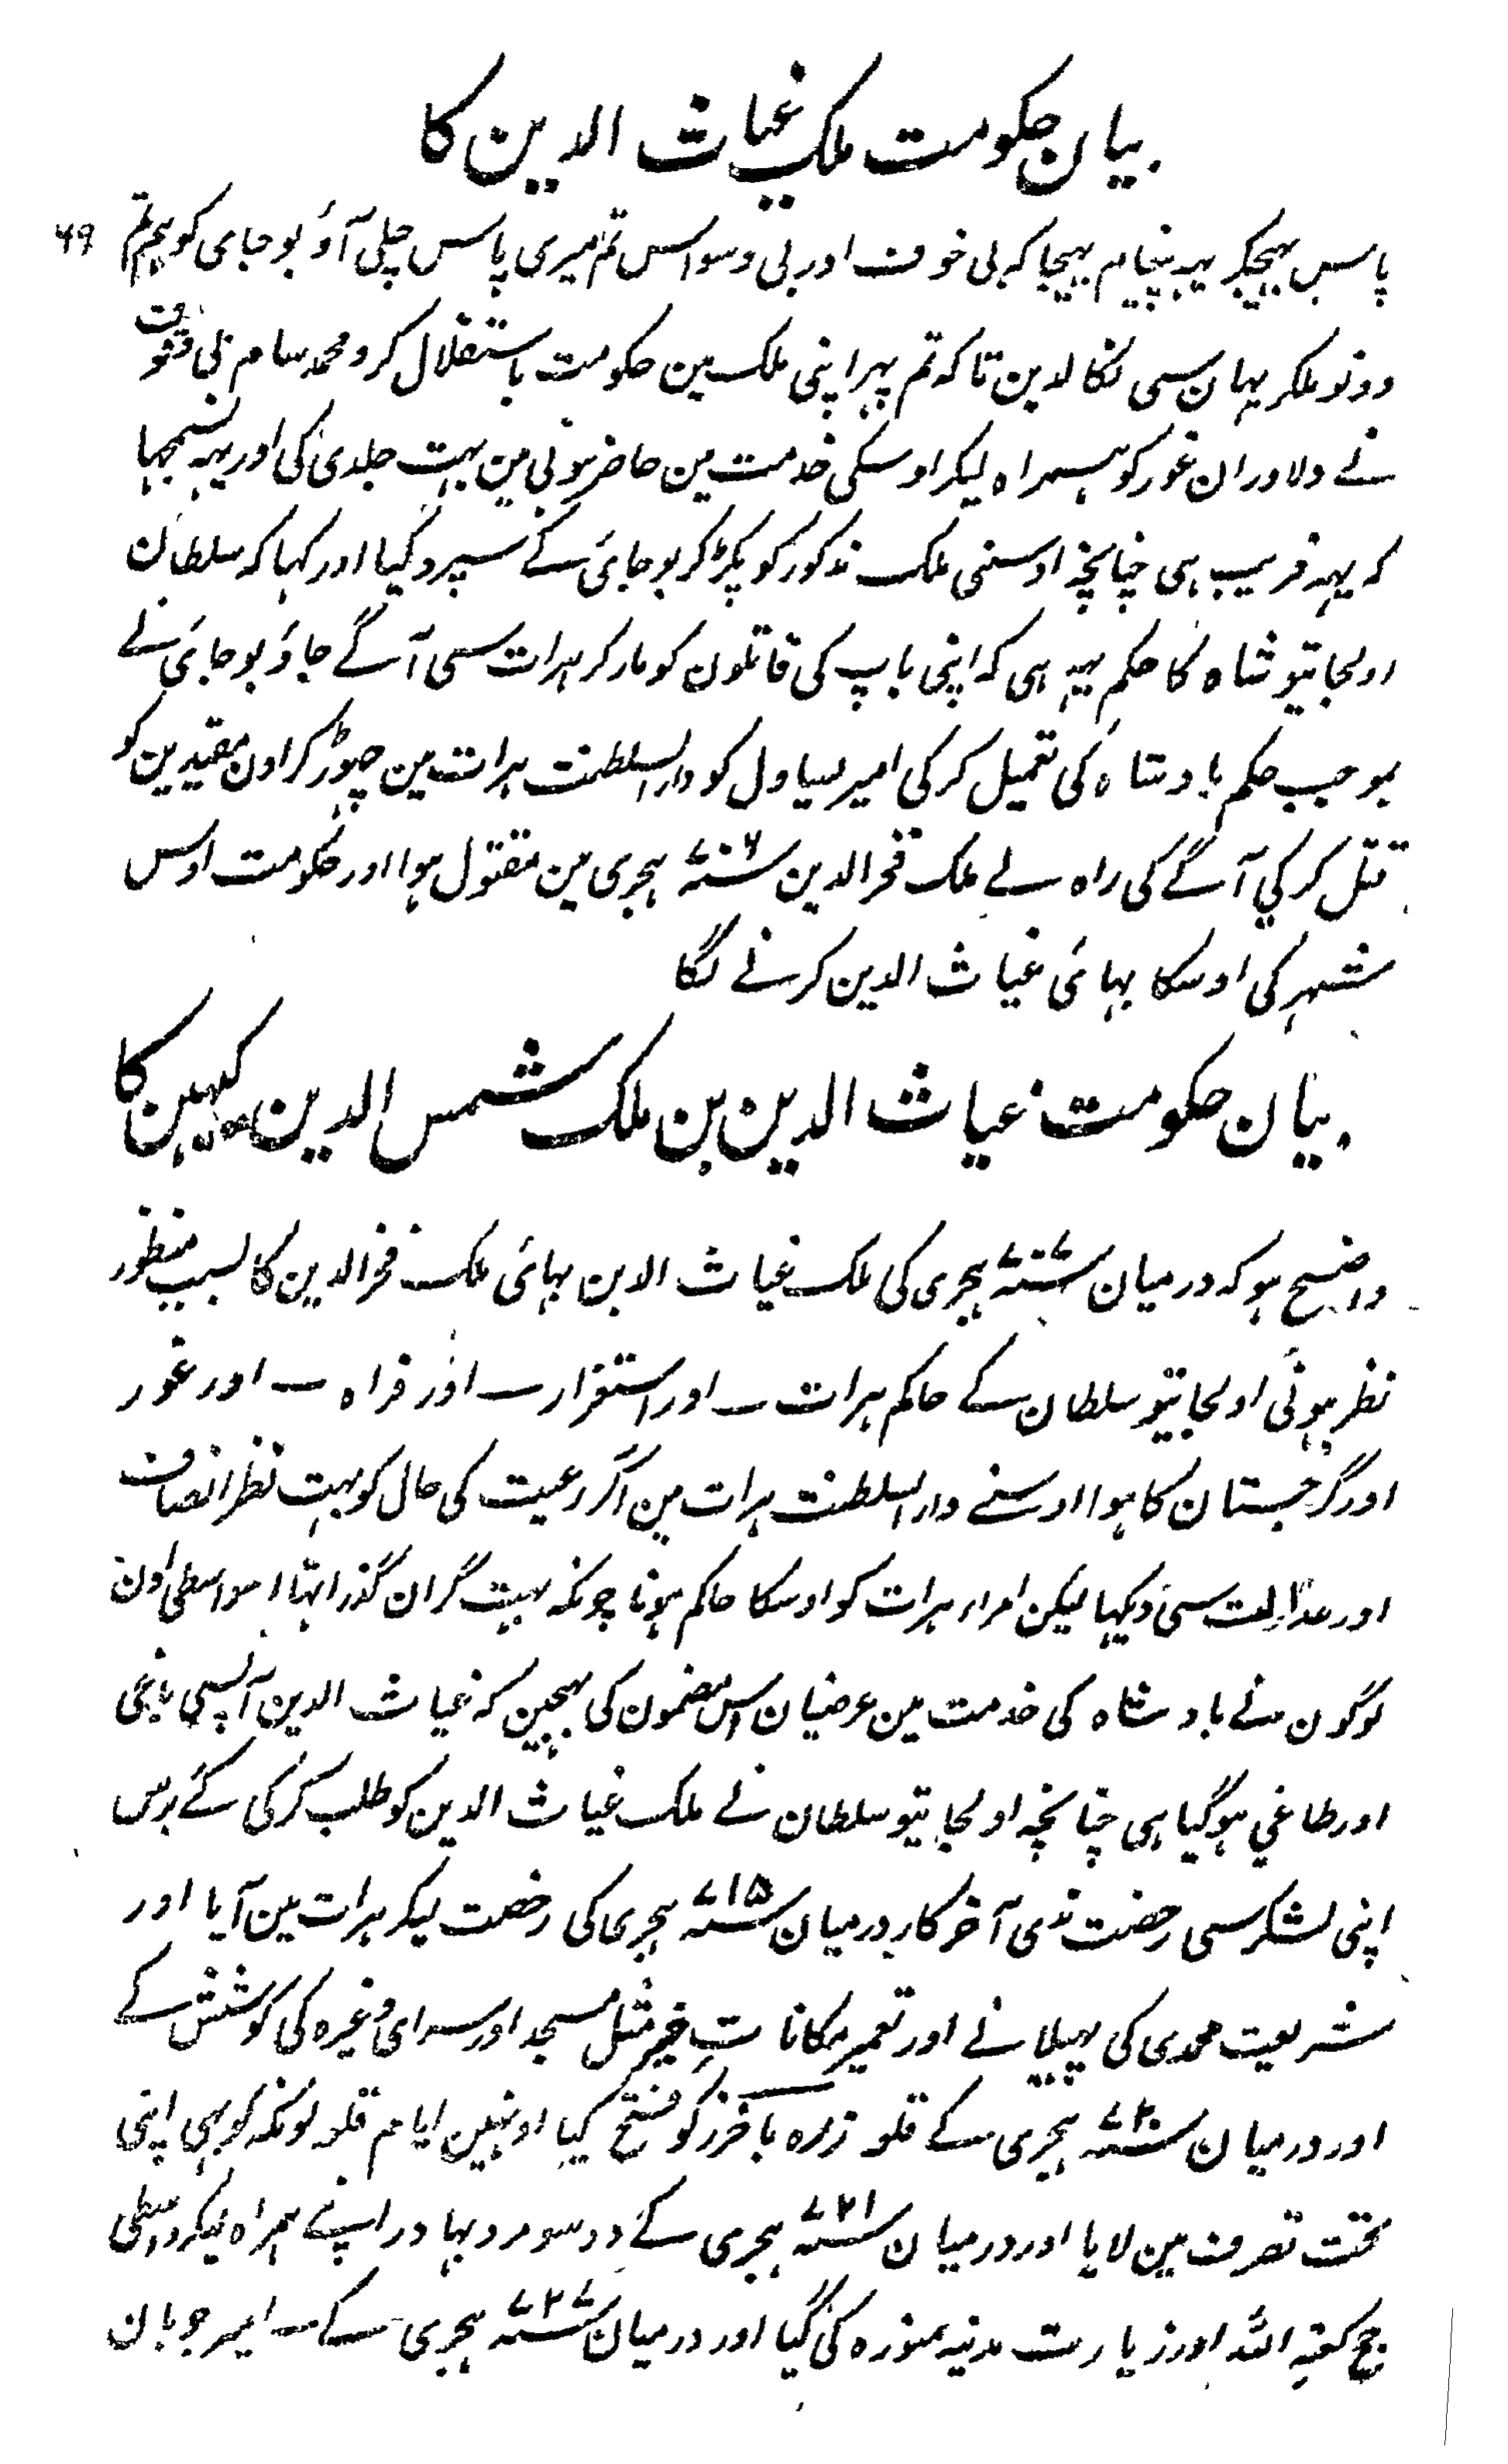 بیان حکومت ملک غیاث الدین کا
۶۹
پاس بہیجکر یہہ پیغام بہیجا کہ بی خوف اور بی وسواس تم میری پاس چلی آؤ بوجای کو ہم تم
دونو ملکر یہان سی نکالدین تاکہ تم پہر اپنی ملک مین حکومت باستقلال کرو محمد سام بی وقوف
نے دلاوران غور کو ہمراہ لیکر اوسکی خدمت مین حاضر ہونی مین بہت جلدی کی اور یہہ نسمجہا
کہ یہہ فریب ہی چنانچہ اوسنی ملک مذکور کو پکڑ کر بوجای کے سپرد کیا اور کہا کہ سلطان
اولجایتو شاہ کا حکم یہہ ہی کہ اپنی باپ کی قاتلون کو مار کر ہرات سی آگے جاؤ بوجای نے
بموجب حکم بادشاہ کی تعمیل کرکی امیر یساول کو دارالسلطنت ہرات مین چہوڑ کر اون مقیدین کو
قتل کرکی آگے کی راہ لے ملک فخرالدین سنہ ۷۰۶ ہجری مین مقتول ہوا اور حکومت اوس
شہر کی اوسکا بہائی غیاث الدین کرنے لگا
بیان حکومت غیاث الدین بن ملک شمس الدین کہین کا
واضح ہو کہ درمیان سنہ ۷۰۷ ہجری کی ملک غیاث الدین بہائی ملک فخرالدین کا بسبب منظور
نظر ہوئی اولجایتو سلطان کے حاکم ہرات ۔ اور استفزار ۔ اور فراہ ۔ اور غور
اور گرجستان کا ہوا اوسنے دارالسلطنت ہرات مین آکر رعیت کی حال کو بہت نظر انصاف
اور عدالت سی دیکہا لیکن امراء ہرات کو اوسکا حاکم ہونا چونکہ بہت گران گذرا تہا اسواسطی اون
لوگون نے بادشاہ کی خدمت مین عرضیان اس مضمون کی بہیجین کہ غیاث الدین آپسی باغی
اور طاغی ہوگیا ہی چنانچہ اولجایتو سلطان نے ملک غیاث الدین کو طلب کرکی کے برس
اپنی لشکر سی رخصت ندی آخر کار درمیان سنہ ۷۱۵ ہجری کی رخصت لیکر ہرات مین آیا اور
شریعت محمدی کی پہیلانے اور تعمیر مکانات خیر مثل مسجد اور سرای وغیرہ کی کوشش کے
اور درمیان سنہ ۷۲۰ ہجری کے قلعہ زرہ باخرز کو فتح کیا اونہین ایام قلعہ تونکہ کو بہی اپنی
تحت تصرف مین لایا اور درمیان سنہ ۷۲۱ ہجری کے دو سو مرد بہادر اپنے ہمراہ لیکر واسطی
حج کعبۃ اللہ اور زیارت مدینہ منورہ کی گیا اور درمیان سنہ ۷۲۷ ہجری کے ۔ امیر چوبان